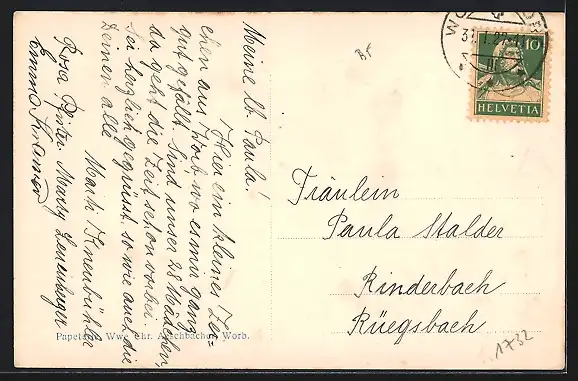 Meine lb. Paula!
Hier ein kleines Zei-
chen aus Worb wo es mir ganz
gut gefällt. Sind unser 28 Mädchen,
da geht die Zeit schon vorbei
Sei herzlich gegrüsst, so wie auch die
Deinen alle
Marti
Rosa Pfister Marty Leuenberger
Emma
Fräulein
Paula Stalder
Rinderbach
Rüegsbach
10
HELVETIA
WORB
Papeterie Wwe. Chr. Aeschbacher, Worb.
1732